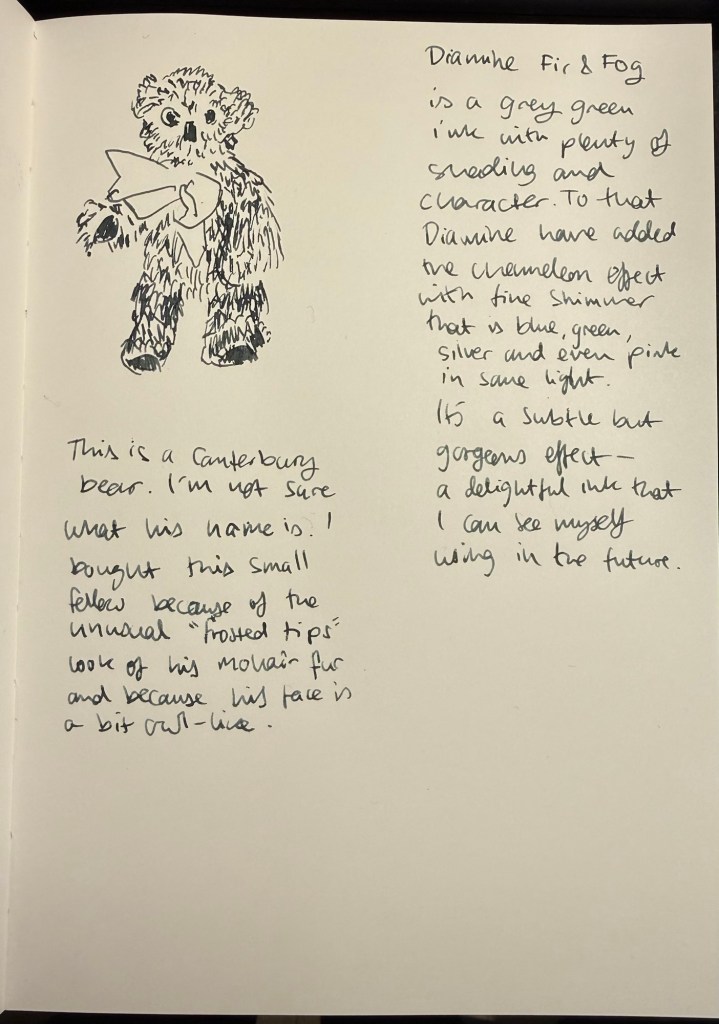 This is a Canterbury
bear. I'm not sure
what his name is. I
bought this small
fellow because of the
unusual "frosted tips"
look of his mohair fur
and because his face is
a bit owl-like.
Diamine Fir & Fog
is a grey green
ink with plenty of
shading and
character. To that
Diamine have added
the chameleon effect
with fine shimmer
that is blue, green,
silver and even pink
in some light.
It's a subtle but
gorgeous effect —
a delightful ink that
I can see myself
using in the future.